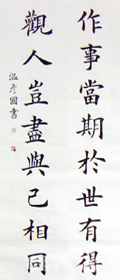 作事當期於世有得
觀人豈盡與己相同
溫彥國書